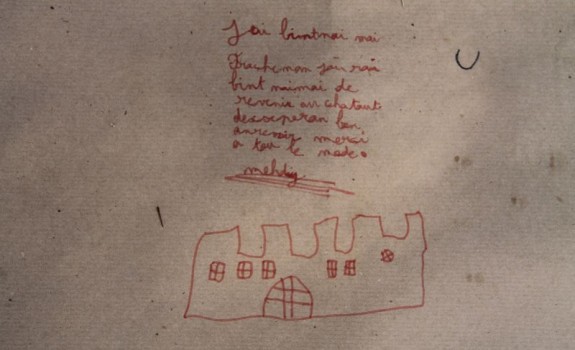 J'ai bintmai mai
Frachemom j'ai rai
bint maimai de
revenir au chataut
desoeperan bon
anrevoir merci
a tou le mode.
mehdiy